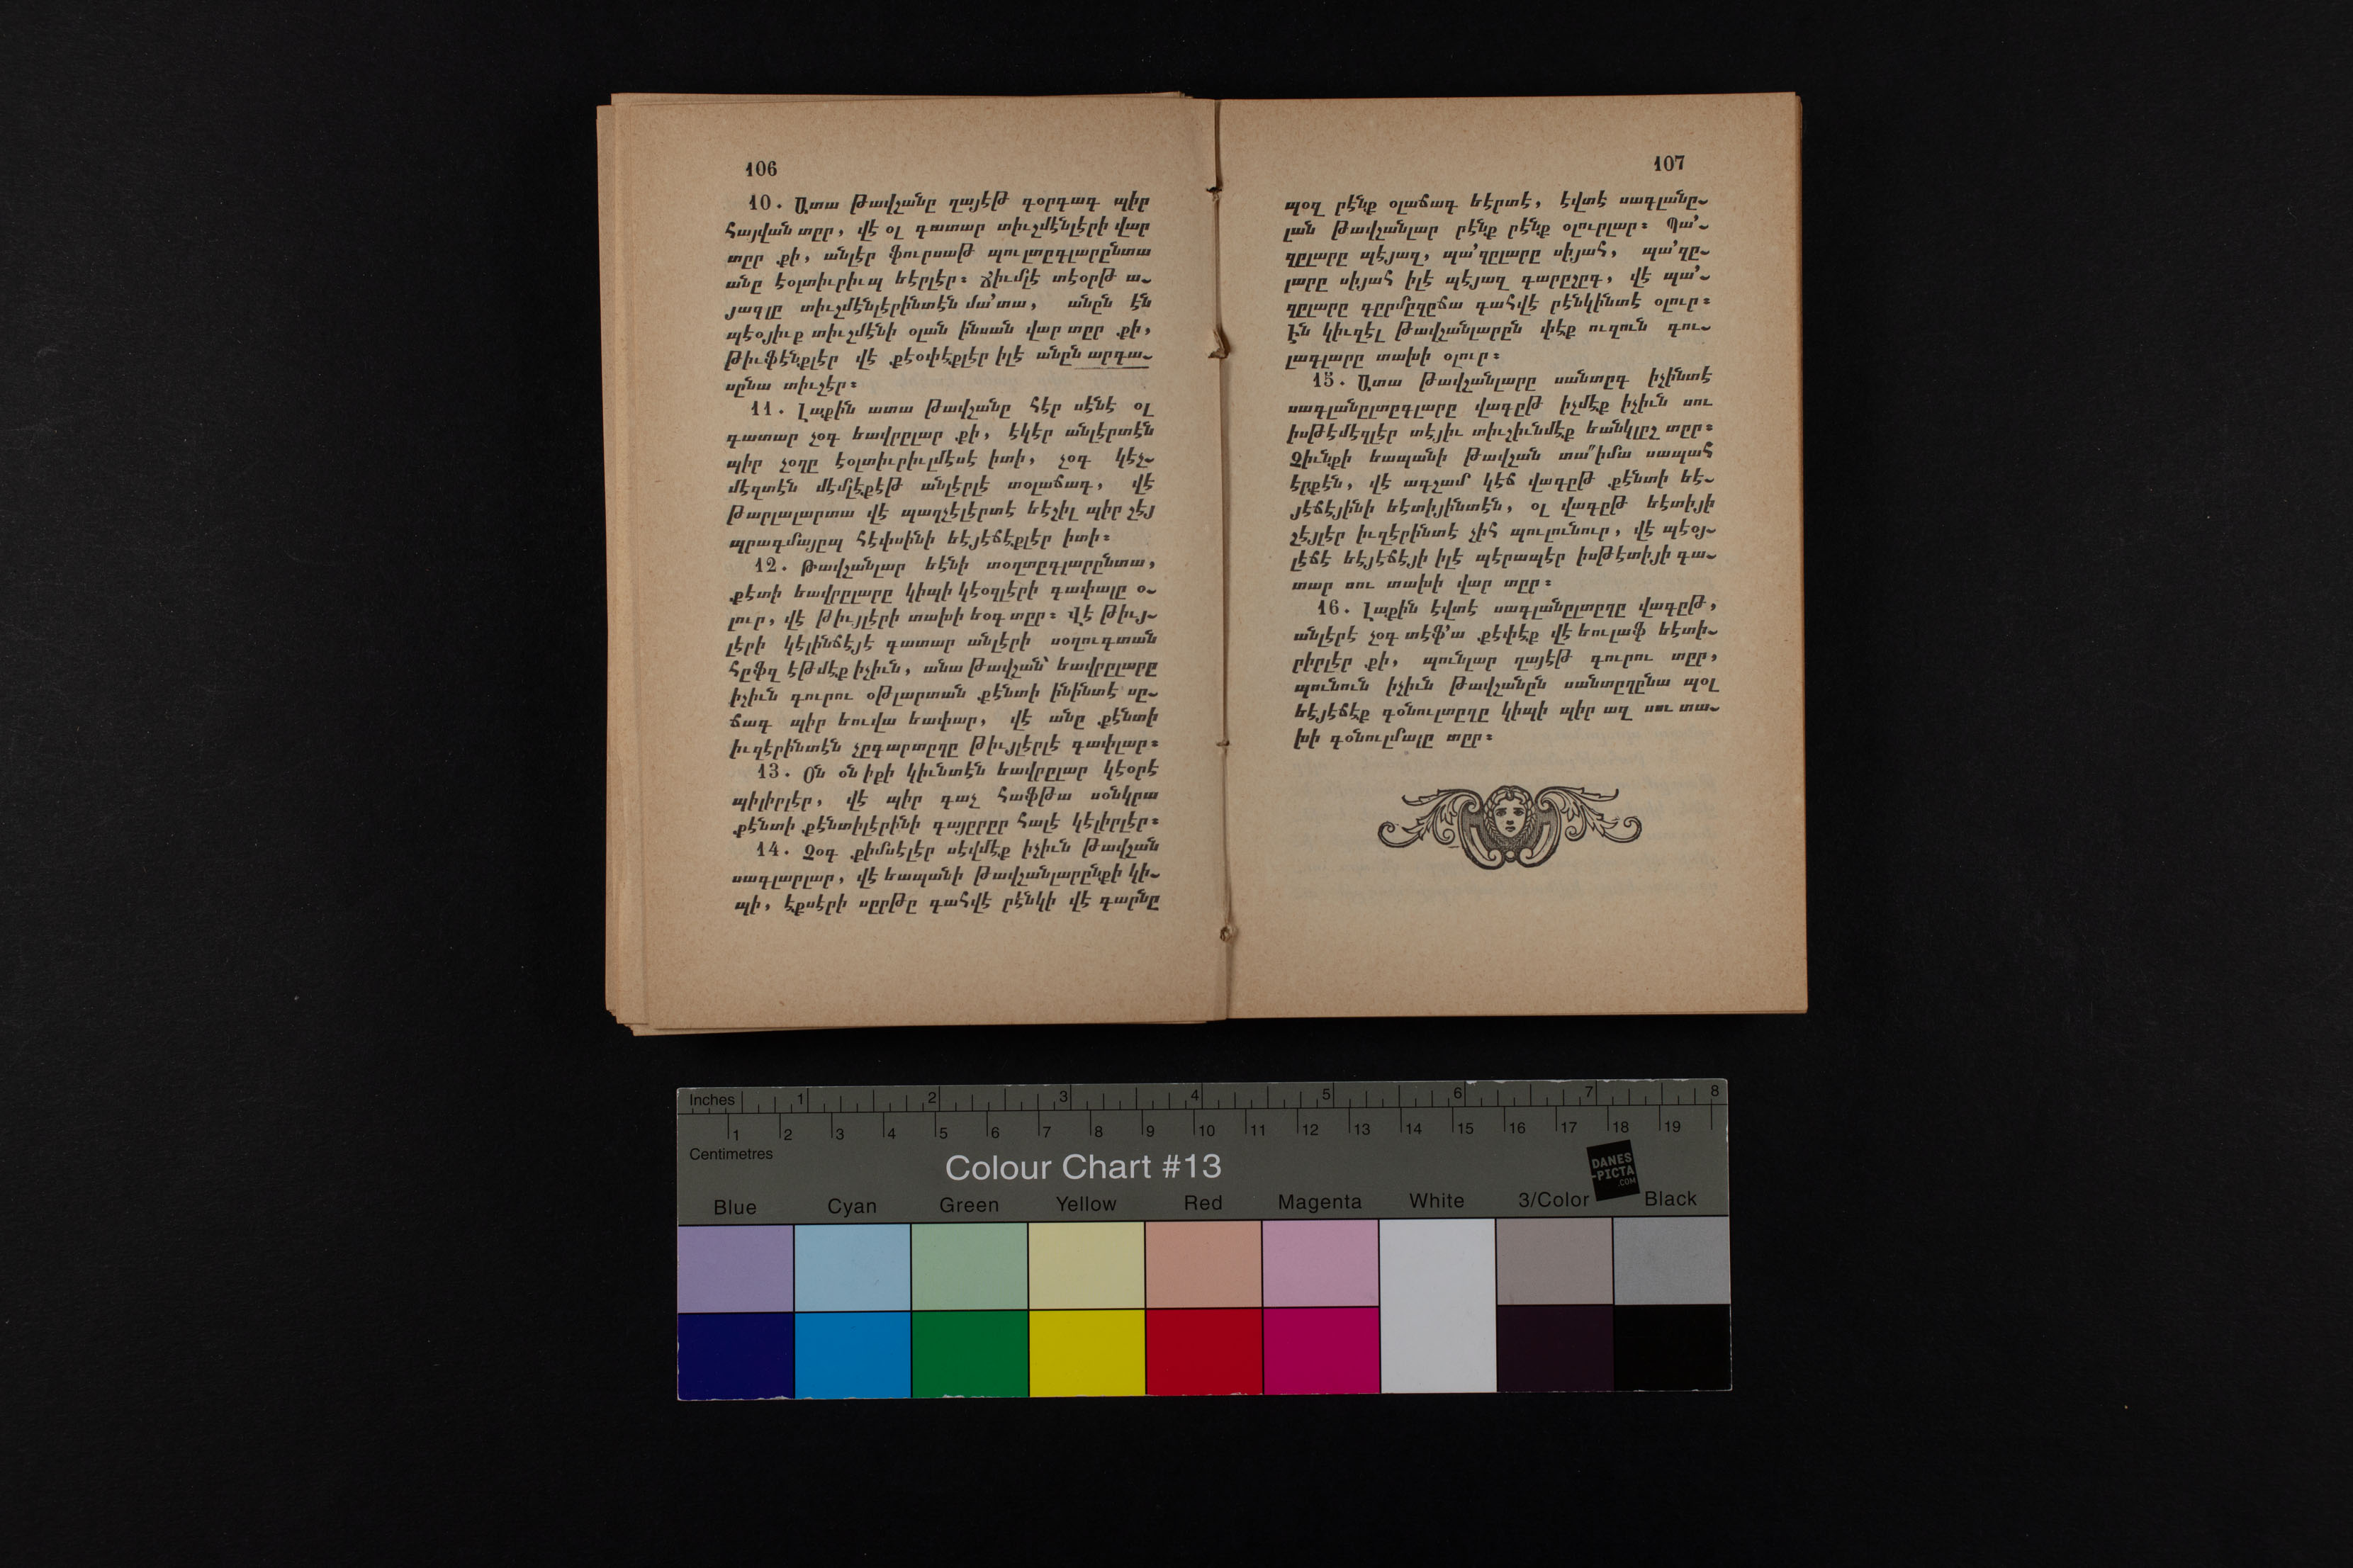 106
10. Ատա թավշանը ղայէթ գօրգագ պիր
հայվան տըր, վէ օլ գատար տիւշմէնլէրի վար
տըր քի, անլէր ֆուրսաթ պուլտըգլարընտա
անը էօլտիւրիւպ եէրլէր։ Ճիւմլէ տէօրթ ա֊
յագլը տիւշմէնլէրինտէն մա՚տա, անըն էն
պէօյիւք տիւշմէնի օլան ինսան վար տըր քի,
թիւֆէնքլէր վէ քէօփէքլէր իլէ անըն արգա֊
սընա տիւշէր։
11. Լաքին ատա թավշանը հէր սէնէ օլ
գատար չօգ եավրըլար քի, էկէր անլէրտէն
պիր չօղը էօլտիւրիւլմէսէ իտի, չօգ կէչ֊
մէզտէն մէմլէքէթ անլէրլէ տօլաճագ, վէ
թարլալարտա վէ պաղչէլէրտէ եէշիլ պիր շէյ
պրագմայըպ հէփսինի եէյէճէքլէր իտի։
12. Թավշանլար եէնի տօղտըգլարընտա,
քէտի եավրըլարը կիպի կէօզլէրի գափալը օ֊
լուր, վէ թիւյլէրի տախի եօգ տըր։ Վէ թիւյ֊
լէրի կէլինճէյէ գատար անլէրի սօղուգտան
հըֆզ էթմէք իչիւն, անա թավշան՝ եավրըլարը
իչիւն գուրու օթլարտան քէնտի ինինտէ սը֊
ճագ պիր եուվա եափար, վէ անը քէնտի
իւզէրինտէն չըգարտըղը թիւյլէրլէ գափլար։
13. Օն օն իքի կիւնտէն եավրըլար կէօրէ
պիլիրլէր, վէ պիր գաչ հաֆթա սօնկրա
քէնտի քէնտիլէրինի գայըրըր հալէ կէլիրլէր։
14. Չօգ քիմսէլէր սէվմէք իչիւն թավշան
սագլարլար, վէ եապանի թավշանլարընքի կի֊
պի, էքսէրի սըրթը գահվէ րէնկի վէ գարնը
107
պօզ րէնք օլաճագ եէրտէ, էվտէ սագլանը֊
լան թավշանլար րէնք րէնք օլուրլար։ Պա՚֊
զըլարը պէյազ, պա՚զըլարը սիյահ, պա՚զը֊
լարը սիյահ իլէ պէյազ գարըշըգ, վէ պա՚֊
զըլարը գըրմըզըճա գահվէ րէնկինտէ օլուր։
Էն կիւզէլ թավշանլարըն փէք ուզուն գու֊
լագլարը տախի օլուր։
15. Ատա թավշանլարը սանտըգ իչինտէ
սագլանըլտըգլարը վագըթ իչմէք իչիւն սու
իսթէմէզլէր տէյիւ տիւշիւնմէք եանկլըշ տըր։
Չիւնքի եապանի թավշան տա՞իմա սապահ
էրքէն, վէ ագշամ կէճ վագըթ քէնտի եէ֊
յէճէյինի եէտիյինտէն, օլ վագըթ եէտիյի
շէյլէր իւզէրինտէ չիհ պուլունուր, վէ պէօյ֊
լէճէ եէյէճէյի իլէ պէրապէր իսթէտիյի գա֊
տար սու տախի վար տըր։
16. Լաքին էվտէ սագլանըլտըղը վագըթ,
անլէրէ չօգ տէֆ՚ա քէփէք վէ եուլաֆ եէտի֊
րիրլէր քի, պունլար ղայէթ գուրու տըր,
պունուն իչիւն թավշանըն սանտըղընա պօլ
եէյէճէք գօնուլտըղը կիպի պիր ազ սու տա֊
խի գօնուլմալը տըր։
Inches 1 2 3 4 5 6 7 8
1 2 3 4 5 6 7 8 9 10 11 12 13 14 15 16 17 18 19
Centimetres
Colour Chart #13
DANES
-PICTA
.COM
Blue Cyan Green Yellow Red Magenta White 3/Color Black